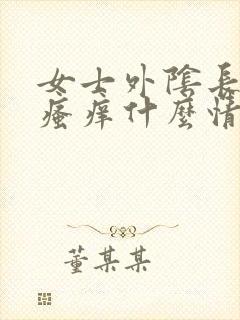 女士外陰長
瘙痒什麼情
董某某